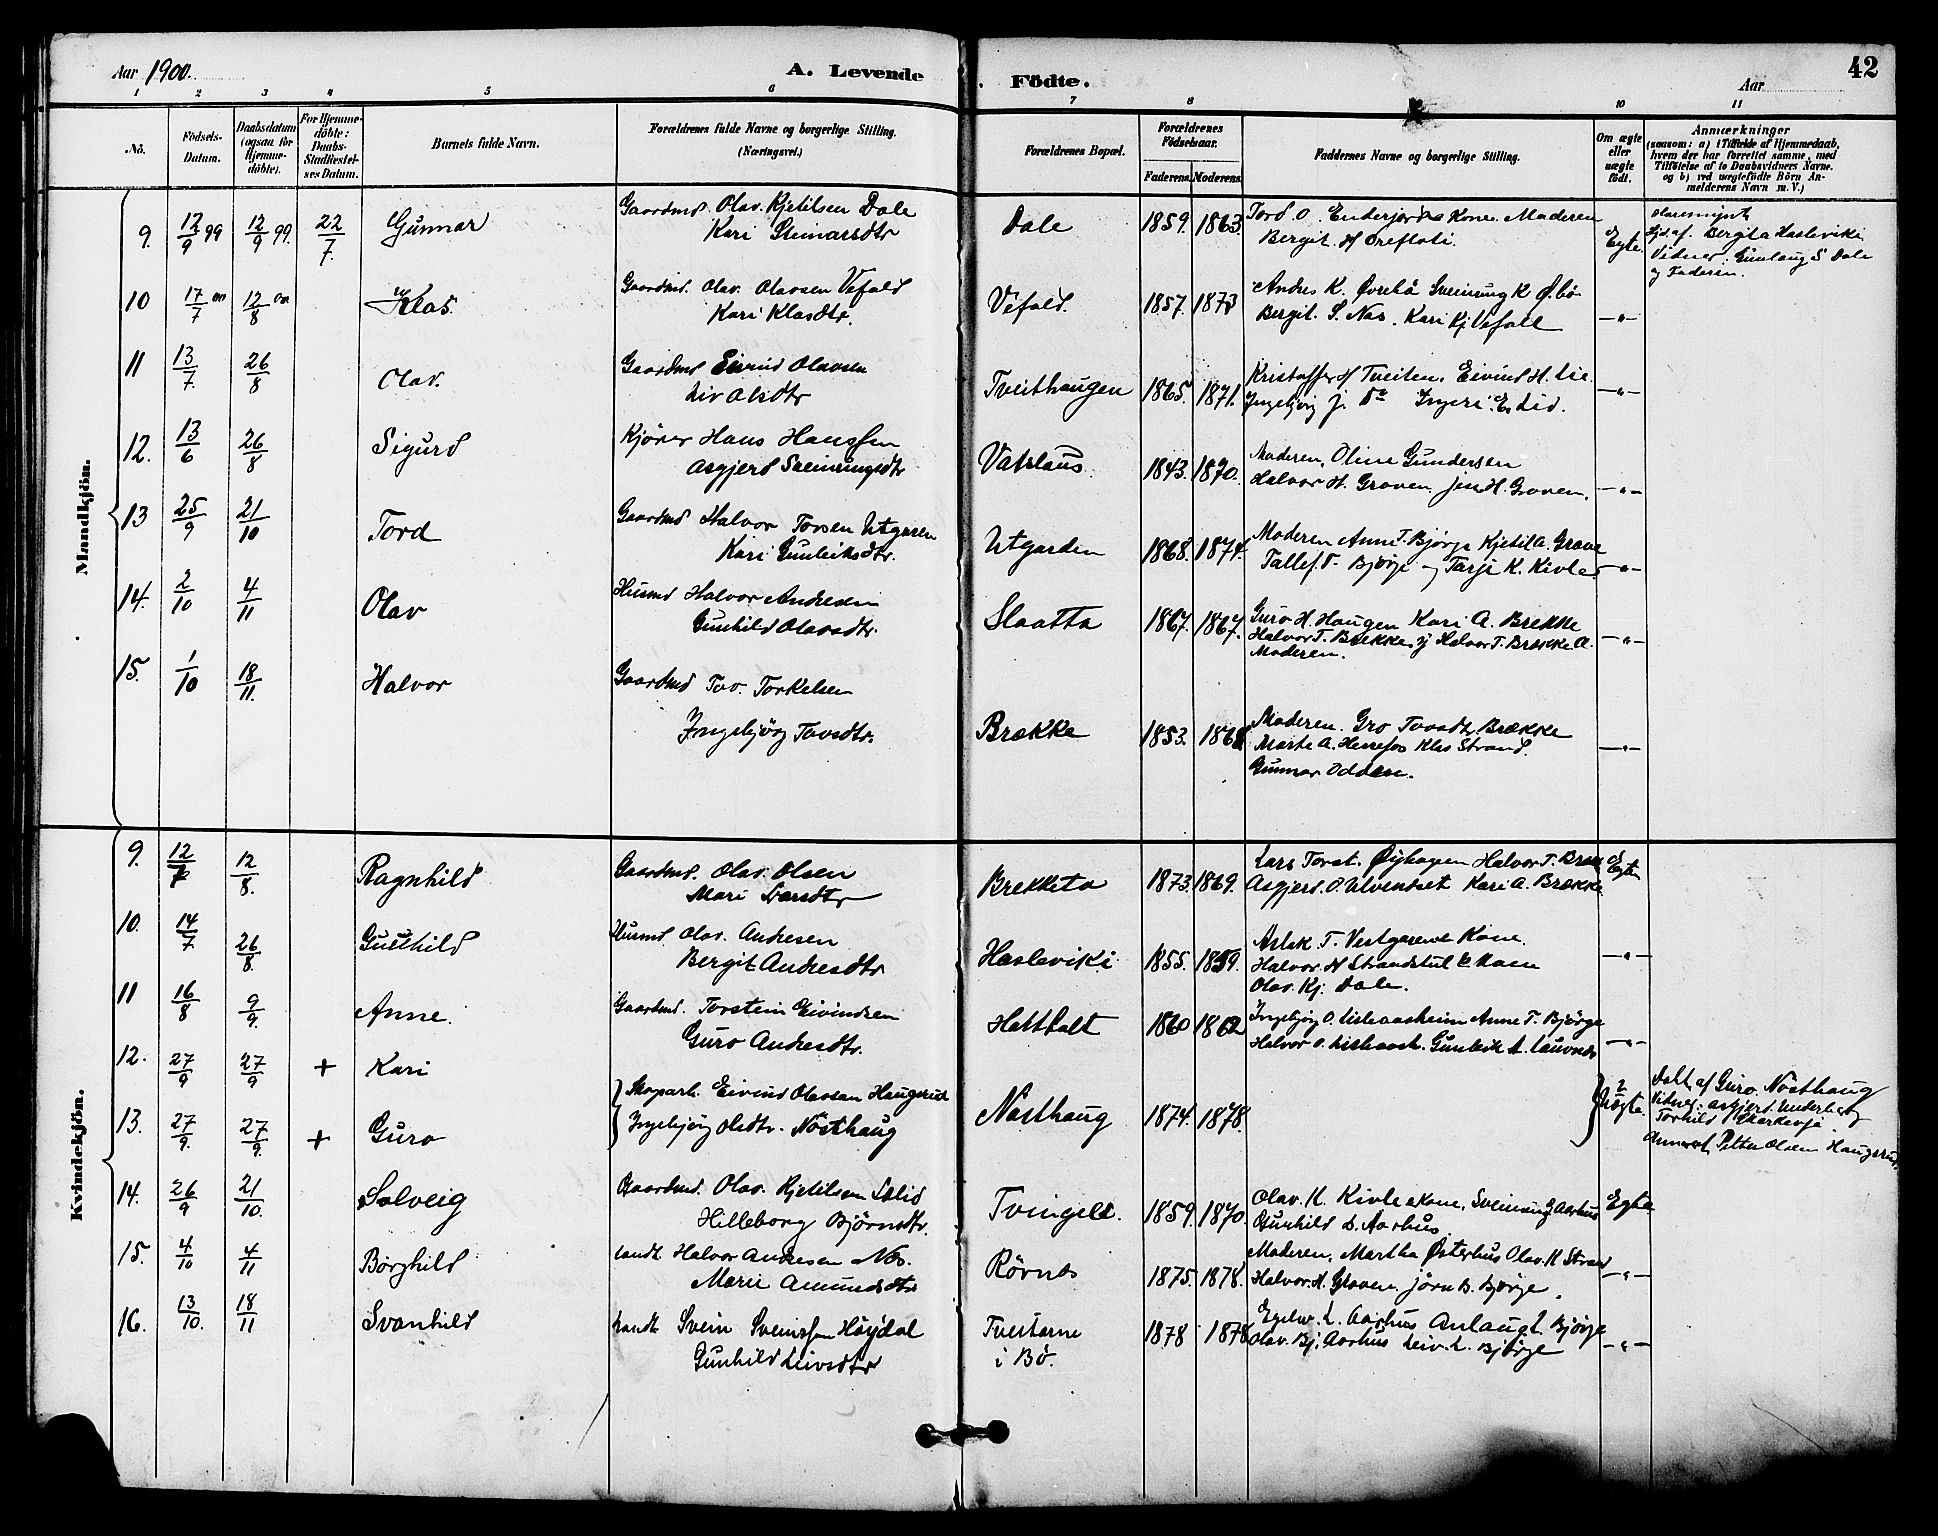 Aar 1900.
A. Levende Födte.
Aar
42
1 2 3 4 5 6 7 8 10 11
No.
Födsels-Datum.
Daabsdatum (ogsaa for Hjemme-döbte).
For Hjemme-döbte: Daabs-Stadfæstel-ses Datum.
Barnets fulde Navn.
Forældrenes fulde Navne og borgerlige Stilling. (Næringsvei.)
Forældrenes Bopæl.
Forældrenes Födselsaar.
Faderens. Moderens.
Faddernes Navne og borgerlige Stilling.
Om ægte eller uægte födt.
Anmærkninger
(saasom: a) i Tilfælde af Hjemmedaab,
hvem der har forrettet samme, med
Tilföielse af to Daabsvidners Navne.
og b) ved uægtefödte Börn An-
melderens Navn m. V.)
Mandkjön.
9. 12/9 99 12/9 99. 22/7. Gunnar
Gaardmd. Olav Kjetilsen Dale
Kari Steinarsdtr
Dale 1859. 1863.
Moderen
Bergit H
Egte.
Hjd. af. Bergit a Hasleviki
Vidner: Gunlaug S Dale
og Faderen.
10 17/7 00 12/8 00 Klas.
Gaardmd. Olav. Olavsen Vefald
Kari Klasdtr.
Vefald. 1857. 1873
Andres K. Øvrebö Sveinung K Ø.bö
Bergit. S. Nas. Kari Kj Vefall
—"—
11 13/7. 26/8 Olav.
Gaardmd Eivind Olavsen
Liv Olsdtr
Tveithaugen 1865. 1871.
Kristoffer H Tveiten. Eivind H. Lie
Ingebjörg J. Do Ingeri E. Lid.
—"—
12. 13/6 26/8 Sigurd
Kjörer Hans Hanssen
Asgjerd Sveinungsdtr
Vatslaus. 1843. 1870.
Moderen, Oline Gundersen
Halvor H. Graven Jens H. Graven.
—"—
13 25/9 21/10 Tord
Gaardmd Halvor Torsen Utgaren
Kari Gunleiksdtr.
Utgarden 1868. 1874.
Moderen Anne T. Björge Kjetil A. Grave
Tallef. T. Björge og Tarje K. Kivle
—"—
14. 2/10 4/11 Olav
Husmd Halvor Andresen
Gunhild Olavsdtr.
Slaatta 1867. 1867.
Guro H. Haugen Kari A. Brekke
Halvor T. Brekke Halvor T. Brekke
Moderen.
—"—
15. 1/10 18/11. Halvor
Gaardmd Tov. Torkelsen
Ingebjörg Tovsdtr.
Brække 1853. 1868
Moderen. Gro Tovsdtr Brække
Marte A. Herrefos Klas Strand.
Gunnar Odden.
—"—
Kvindekjön.
9. 12/7 12/8. Ragnhild
Gaardmd. Olav. Olsen
Mari Larsdtr
Brekketo 1873. 1869.
Lars Torst. Öyhagen Halvor T. Bræk
Asgjerd. O Ulvendset Kari A. Brække
Egte
10. 14/7. 26/8. Gunhild
Husmd. Olav. Andresen
Bergit Andresdtr
Hasleviki 1855. 1859.
Aslak T. Vestgarend Kone.
Halvor. N Strandstul & Kone
Olav. Kj. Dale.
—"—
11 16/8 9/9. Anne.
Gaardmd. Torstein Eivindsen
Guro Andresdtr.
Hattdalt 1860 1862
Ingebjörg O. Lislaasheim Anne T. Björge
Halvor O. Lislaash. Gunleik A. Lauvnes
—"—
12. 27/9 27/9 + Kari
13. 27/9. 27/9. + Guro
Skopark. Eivind Olavsen Haugerud
Ingebjörg Olsdtr. Nösthaug
Nösthaug 1874. 1878.
2 Uægte.
Dbt. af Guro Nösthaug
Vidner: Asgjerd. Underberg
Torhild
Anmeldt Petter Olsen Haugerud.
14. 26/9 21/10. Solveig
Gaardmd. Olav. Kjetilsen Lelid
Hilleborg Björnsdtr.
Tveingelt. 1859. 1870.
Olav. K. Kivle & Kone. Sveinung Aarhus
Gunhild L. Aarhus
Egte
15. 4/10 4/11 Borghild
Landt. Halvor Andresen Nes.
Marie Amundsdtr
Rörnes 1875. 1878.
Moderen, Martha Österhus Olav. K Strand
Halvor. H. Graven. Jörn B. Björge.
—"—
16. 13/10. 18/11 Svanhild
Landt Svein Sveinssen Höydal
Gunhild Leivsdtr
Tveitarne
i Bö.
1878 1878
L. Aarhus Anlaug L. Björge
Olav. Bj. Aarhus Leiv. L. Björge
—"—